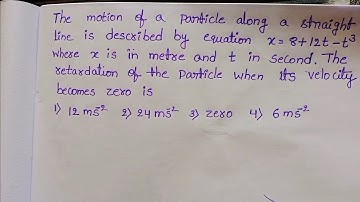 The motion of a particle along a straight
line is described by equation x = 8+12t-t³
where x is in metre and t in second. The
retardation of the particle when its velocity
becomes zero is
1) 12 ms⁻² 2) 24 ms⁻² 3) zero 4) 6 ms⁻²